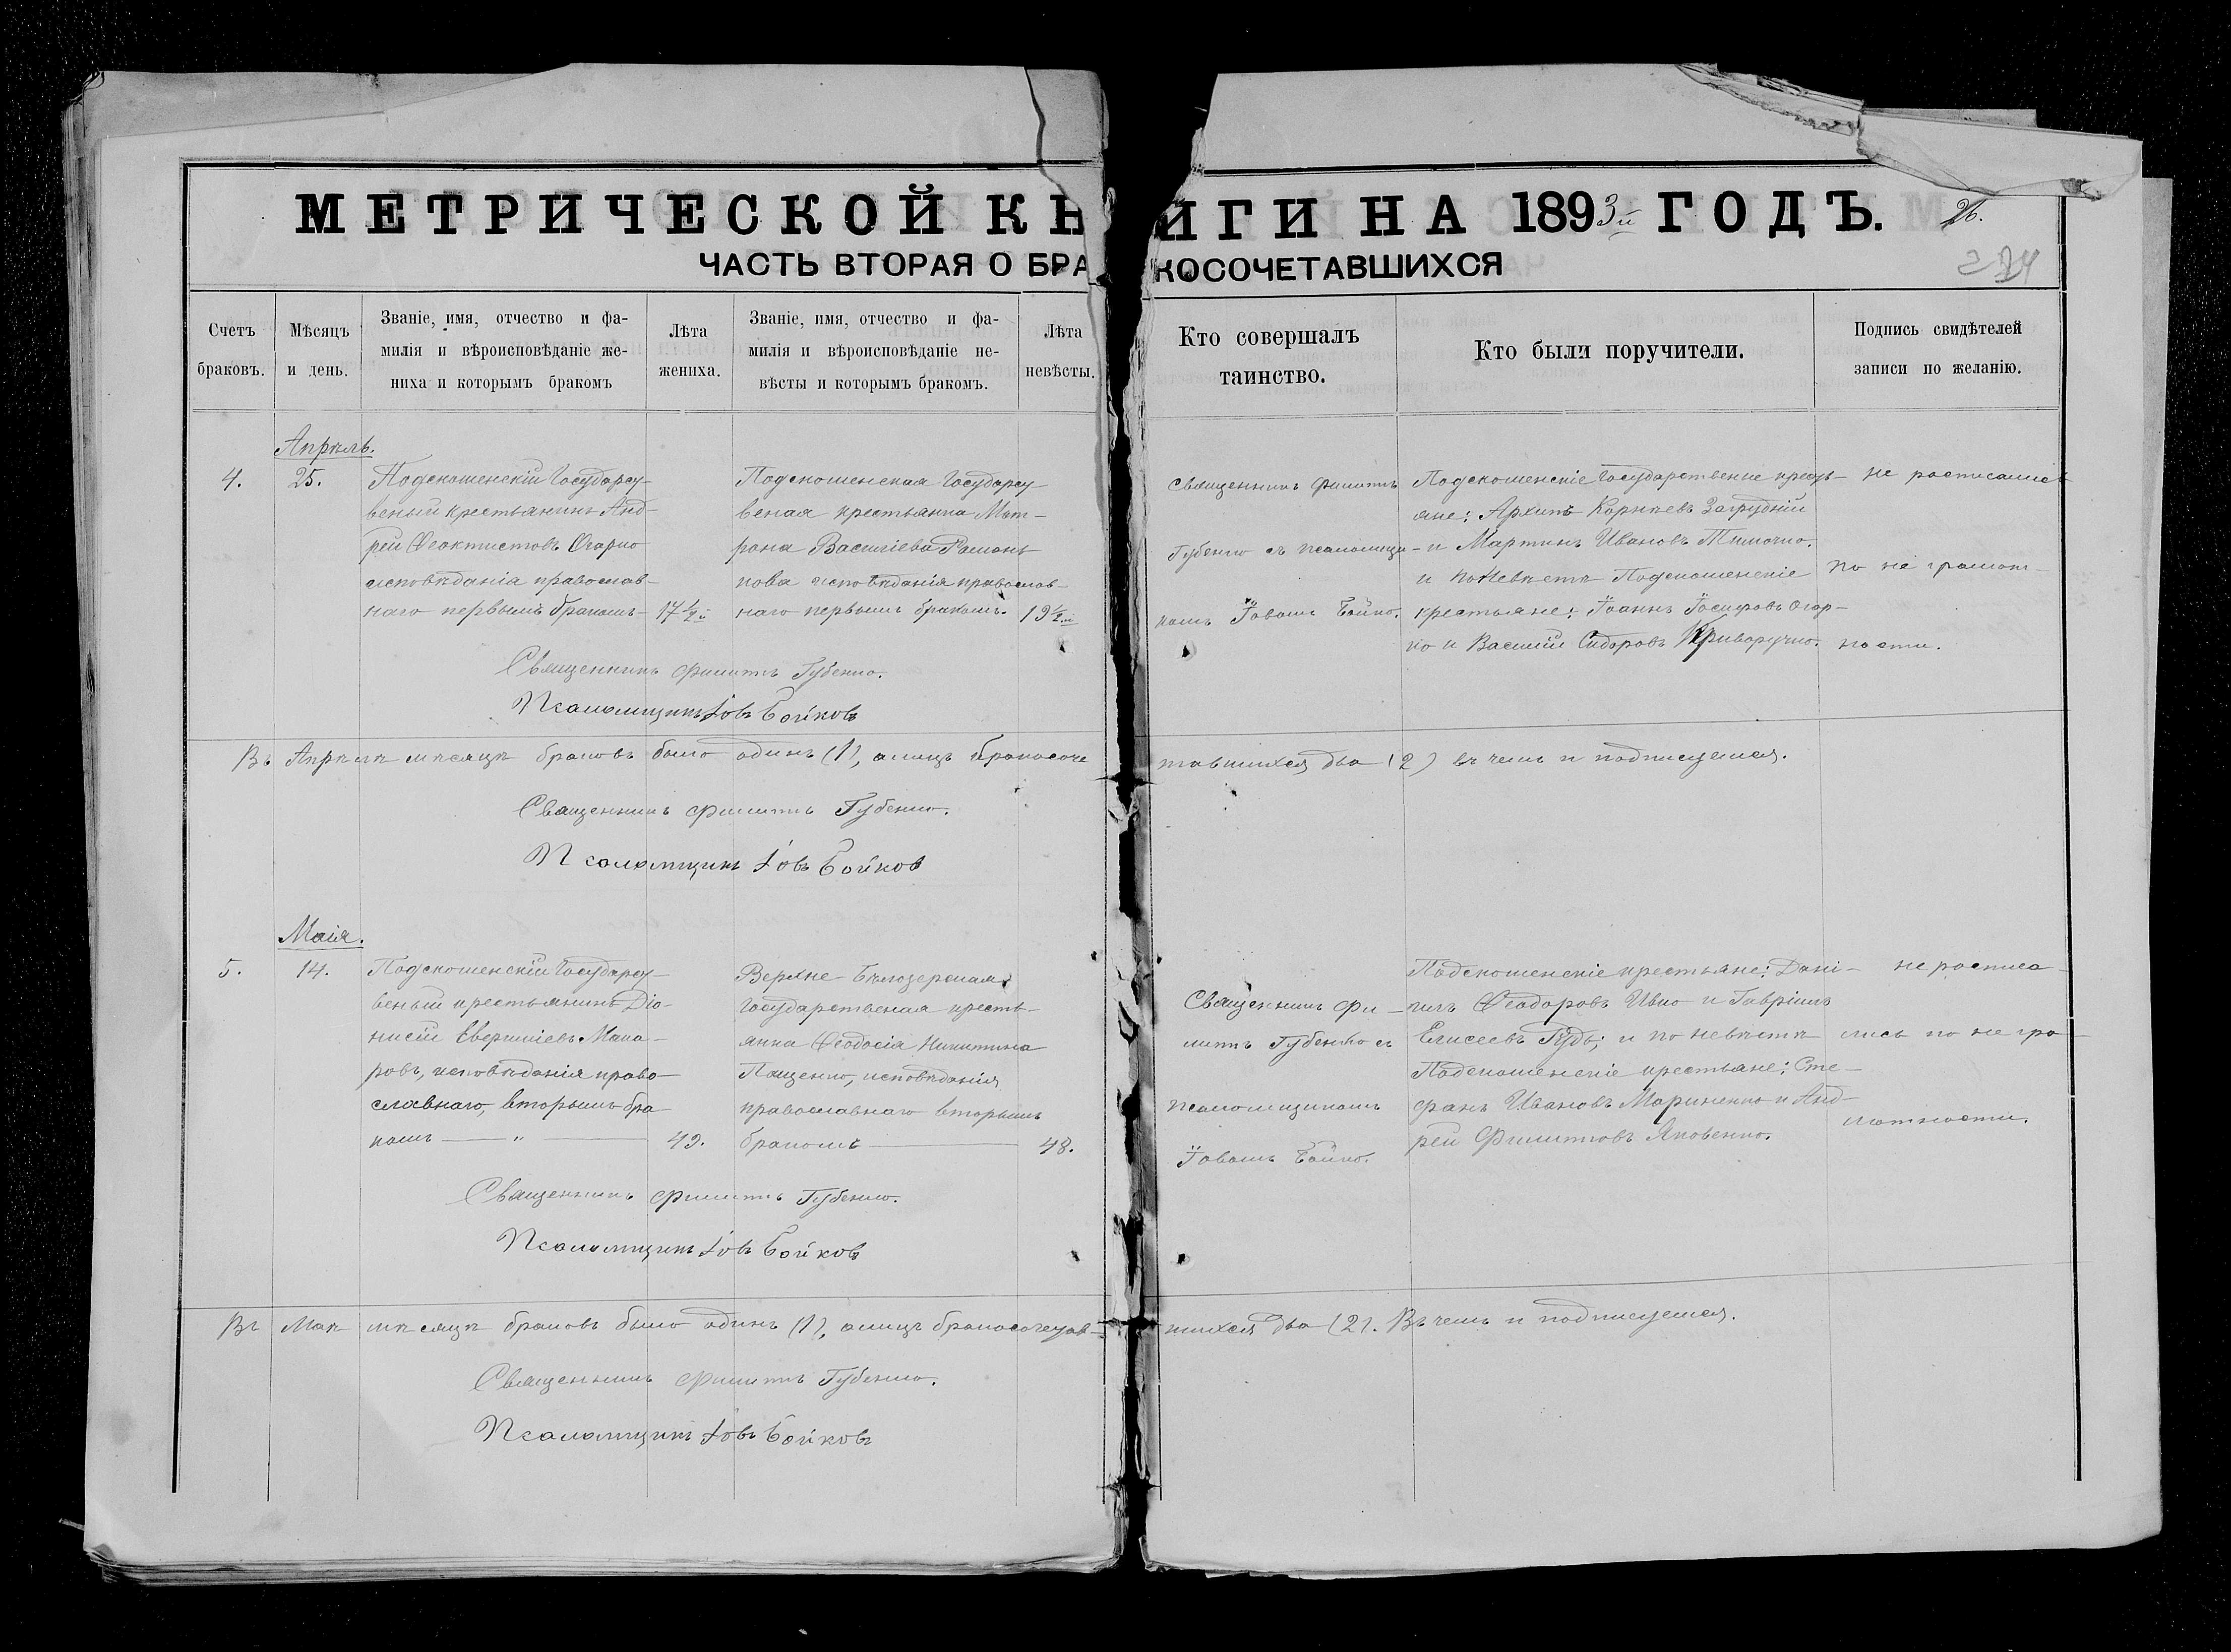 МЕТРИЧЕСКОЙ КНИГИ НА 1893й ГОДЪ. 26.
ЧАСТЬ ВТОРАЯ О БРАКОСОЧЕТАВШИХСЯ
Счетъ
браковъ.
Мѣсяцъ
и день.
Званіе, имя, отчество и фа-
милія и вѣроисповѣданіе же-
ниха и которымъ бракомъ
Лѣта
жениха.
Званіе, имя, отчество и фа-
милія и вѣроисповѣданіе не-
вѣсты и которымъ бракомъ.
Лѣта
невѣсты.
Кто совершалъ
таинство.
Кто были поручители.
Подпись свидѣтелей
записи по желанію.
Апрѣль.
4.
25.
Подскошенскій Государст-
веный крестьянинъ Анд-
рей Ѳеоктистовъ Огарко
исповѣданія православ-
наго первымъ бракомъ
17½
Подскошенская Государст-
веная крестьянка Мат-
рона Василіева Роман-
кова исповѣданія православ-
наго первымъ бракомъ.
19½
Священникъ Филиппъ
Губенко съ псаломщи-
комъ Іовомъ Бойко.
Подскошенскіе Государственые кресть-
яне: Архипъ Корнѣевъ Загрудній
и Мартинъ Ивановъ Тимочко.
и по невѣстѣ Подскошенскіе
крестьяне: Іоаннъ Іосифовъ Огар-
ко и Василій Сидоровъ Криворучко.
не росписались
по не грамот-
ности.
Священникъ Филиппъ Губенко.
Псаломщикъ Іовъ Бойковъ
Въ Апрѣлѣ мѣсяцѣ браковъ было одинъ (1), а лицъ бракосоче
тавшихся два (2) въ чемъ и подписуемся.
Священникъ Филиппъ Губенко.
Псаломщикъ Іовъ Бойков
Маія.
5.
14.
Подскошенскій Государст-
веный крестьянинъ Діо-
нисій Евергніевъ Мака-
ровъ, исповѣданія право-
славнаго, вторымъ бра
комъ — „ —
49.
Верхне-Бѣлозерская
Государственая кресть-
янка Ѳеодосія Никитина
Пащенко, исповѣданія
православнаго вторымъ
бракомъ —
48.
Священникъ Фи-
липпъ Губенко съ
псаломщикомъ
Іовомъ Бойко.
Подскошенскіе крестьяне: Дані-
илъ Ѳеодоровъ Ивко и Гавріилъ
Елисеевъ Гудъ; и по невѣстѣ
Подскошенскіе крестьяне: Сте-
фанъ Ивановъ Мариненко и Анд-
рей Филипповъ Яковенко.
не росписа-
лись по не гра-
мотности.
Священникъ Филиппъ Губенко.
Псаломщикъ Іовъ Бойковъ
Въ Маѣ мѣсяцѣ браковъ было одинъ (1), а лицъ бракосочетав-
шихся два (2). Въ чемъ и подписуемся.
Священникъ Филиппъ Губенко.
Псаломщикъ Іовъ Бойковъ